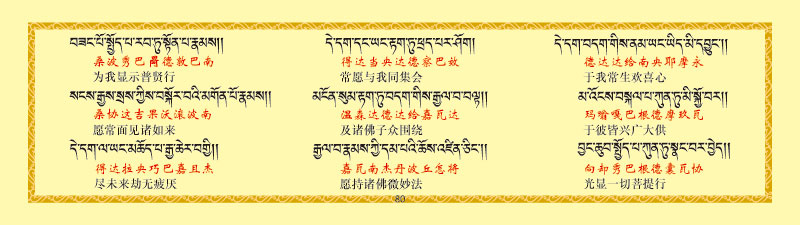 བཟང་པོ་སྤྱོད་པ་རབ་ཏུ་སྟོན་པ་རྣམས།།
桑波秀巴局德敦巴南
为我显示普贤行
དེ་དག་དང་ཡང་རྟག་ཏུ་ཕྲད་པར་ཤོག།
得达当央达德察巴效
常愿与我同集会
དེ་དག་བདག་གིས་ནམ་ཡང་ཡིད་མི་དབྱུང་།།
德达达给南央耶摩永
于我常生欢喜心
སངས་རྒྱས་སྲས་ཀྱིས་བསྐོར་བའི་མགོན་པོ་རྣམས།།
桑协这吉果沃滚波南
愿常面见诸如来
མངོན་སུམ་རྟག་ཏུ་བདག་གིས་རྒྱལ་བ་བལྟ།།
温森达德达给嘉瓦达
及诸佛子众围绕
མ་འོངས་བསྐལ་པ་ཀུན་ཏུ་མི་སྐྱོ་བར།།
玛嗡嘎巴根德摩玖瓦
于彼皆兴广大供
དེ་དག་ལ་ཡང་མཆོད་པ་རྒྱ་ཆེར་བགྱི།།
得达拉央巧巴嘉且杰
尽未来劫无疲厌
རྒྱལ་བ་རྣམས་ཀྱི་དམ་པའི་ཆོས་འཛིན་ཅིང་།།
嘉瓦南杰丹波丘怎将
愿持诸佛微妙法
བྱང་ཆུབ་སྤྱོད་པ་ཀུན་ཏུ་སྣང་བར་བྱེད།།
向却秀巴根德囊瓦协
光显一切菩提行
80